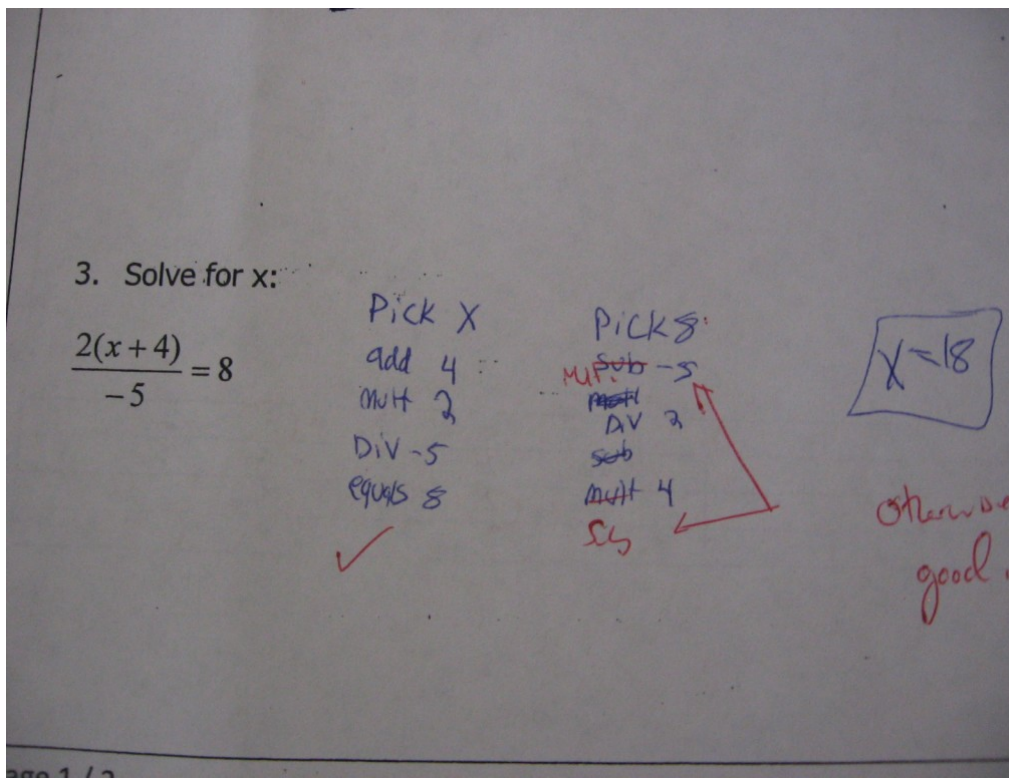 3. Solve for x:
2(x + 4)
-5
= 8
Pick X
add 4
Mult 2
Div -5
equals 8
Pick 8
Mult. sub -5
Div 2
sub
mult 4
Sub
X = 18
Otherwise
good